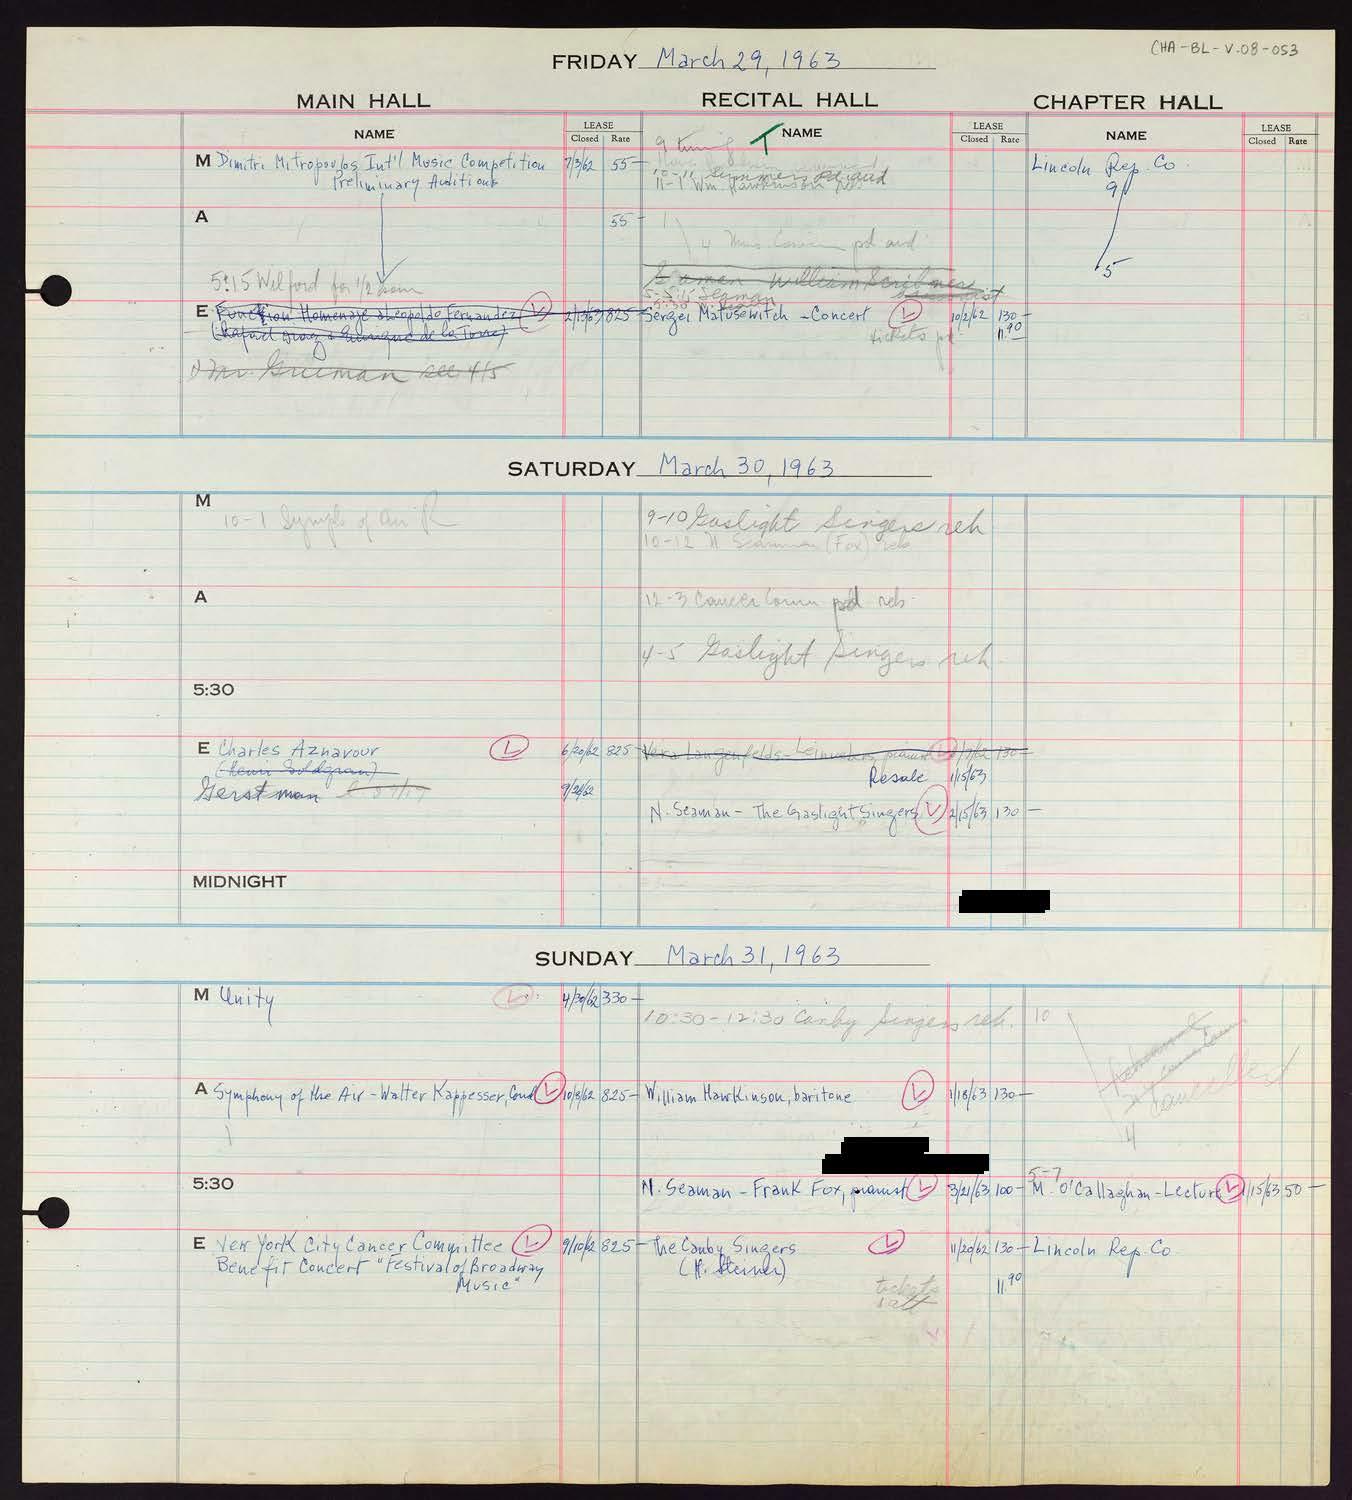 CHA-BL-V.08-053
FRIDAY March 29, 1963
MAIN HALL
RECITAL HALL
CHAPTER HALL
NAME
LEASE
Closed Rate
NAME
LEASE
Closed Rate
NAME
LEASE
Closed Rate
9 tuning
M Dimitri Mitropoulos Int'l Music Competition 7/3/62 55-
Preliminary Auditions
11-1 Wm Hawkinson reh
Lincoln Rep. Co
9
5
A 55-
1
4 pd aud
5:15 Wilford for 1/2 hour
Seaman William Scribner
5-5:15 Seaman
E Function Homenaje a Leopoldo Fernandez L 2/13/63 825-
(Rafael Diaz Enrique de la Torre)
Sergei Matusewitch - Concert L 10/2/62 130-
tickets pd 11.90
Mr. Guzman see 4/5
SATURDAY March 30, 1963
M
10-1 Symph of Air R
9-10 Gaslight Singers reh
10-12 N Seamman (Fox) reh
A
12-3 Cancer Comm pd reh
4-5 Gaslight Singers reh
5:30
E Charles Aznavour L 6/20/62 825-
(Henri Goldgran)
Gerstman 9/26/62
Vera Langenfelds-Leimanis, pianist L 130-
Resale 1/15/63
N. Seaman - The Gaslight Singers L 2/15/63 130-
MIDNIGHT
SUNDAY March 31, 1963
M Unity L 4/30/62 330-
10:30-12:30 Canby Singers reh.
10
Rehearsal
cancelled
4
A Symphony of the Air - Walter Kappesser, Cond L 10/8/62 825-
William Hawkinson, baritone L 1/18/63 130-
5:30
N. Seaman - Frank Fox, pianist L 3/21/63 100-
5-7
M. O'Callaghan - Lecture L 1/15/63 50-
E New York City Cancer Committee L 9/10/62 825-
Benefit Concert "Festival of Broadway
Music"
The Canby Singers L 11/20/62 130-
(H. Steiner)
11.90
tickets
Lincoln Rep. Co